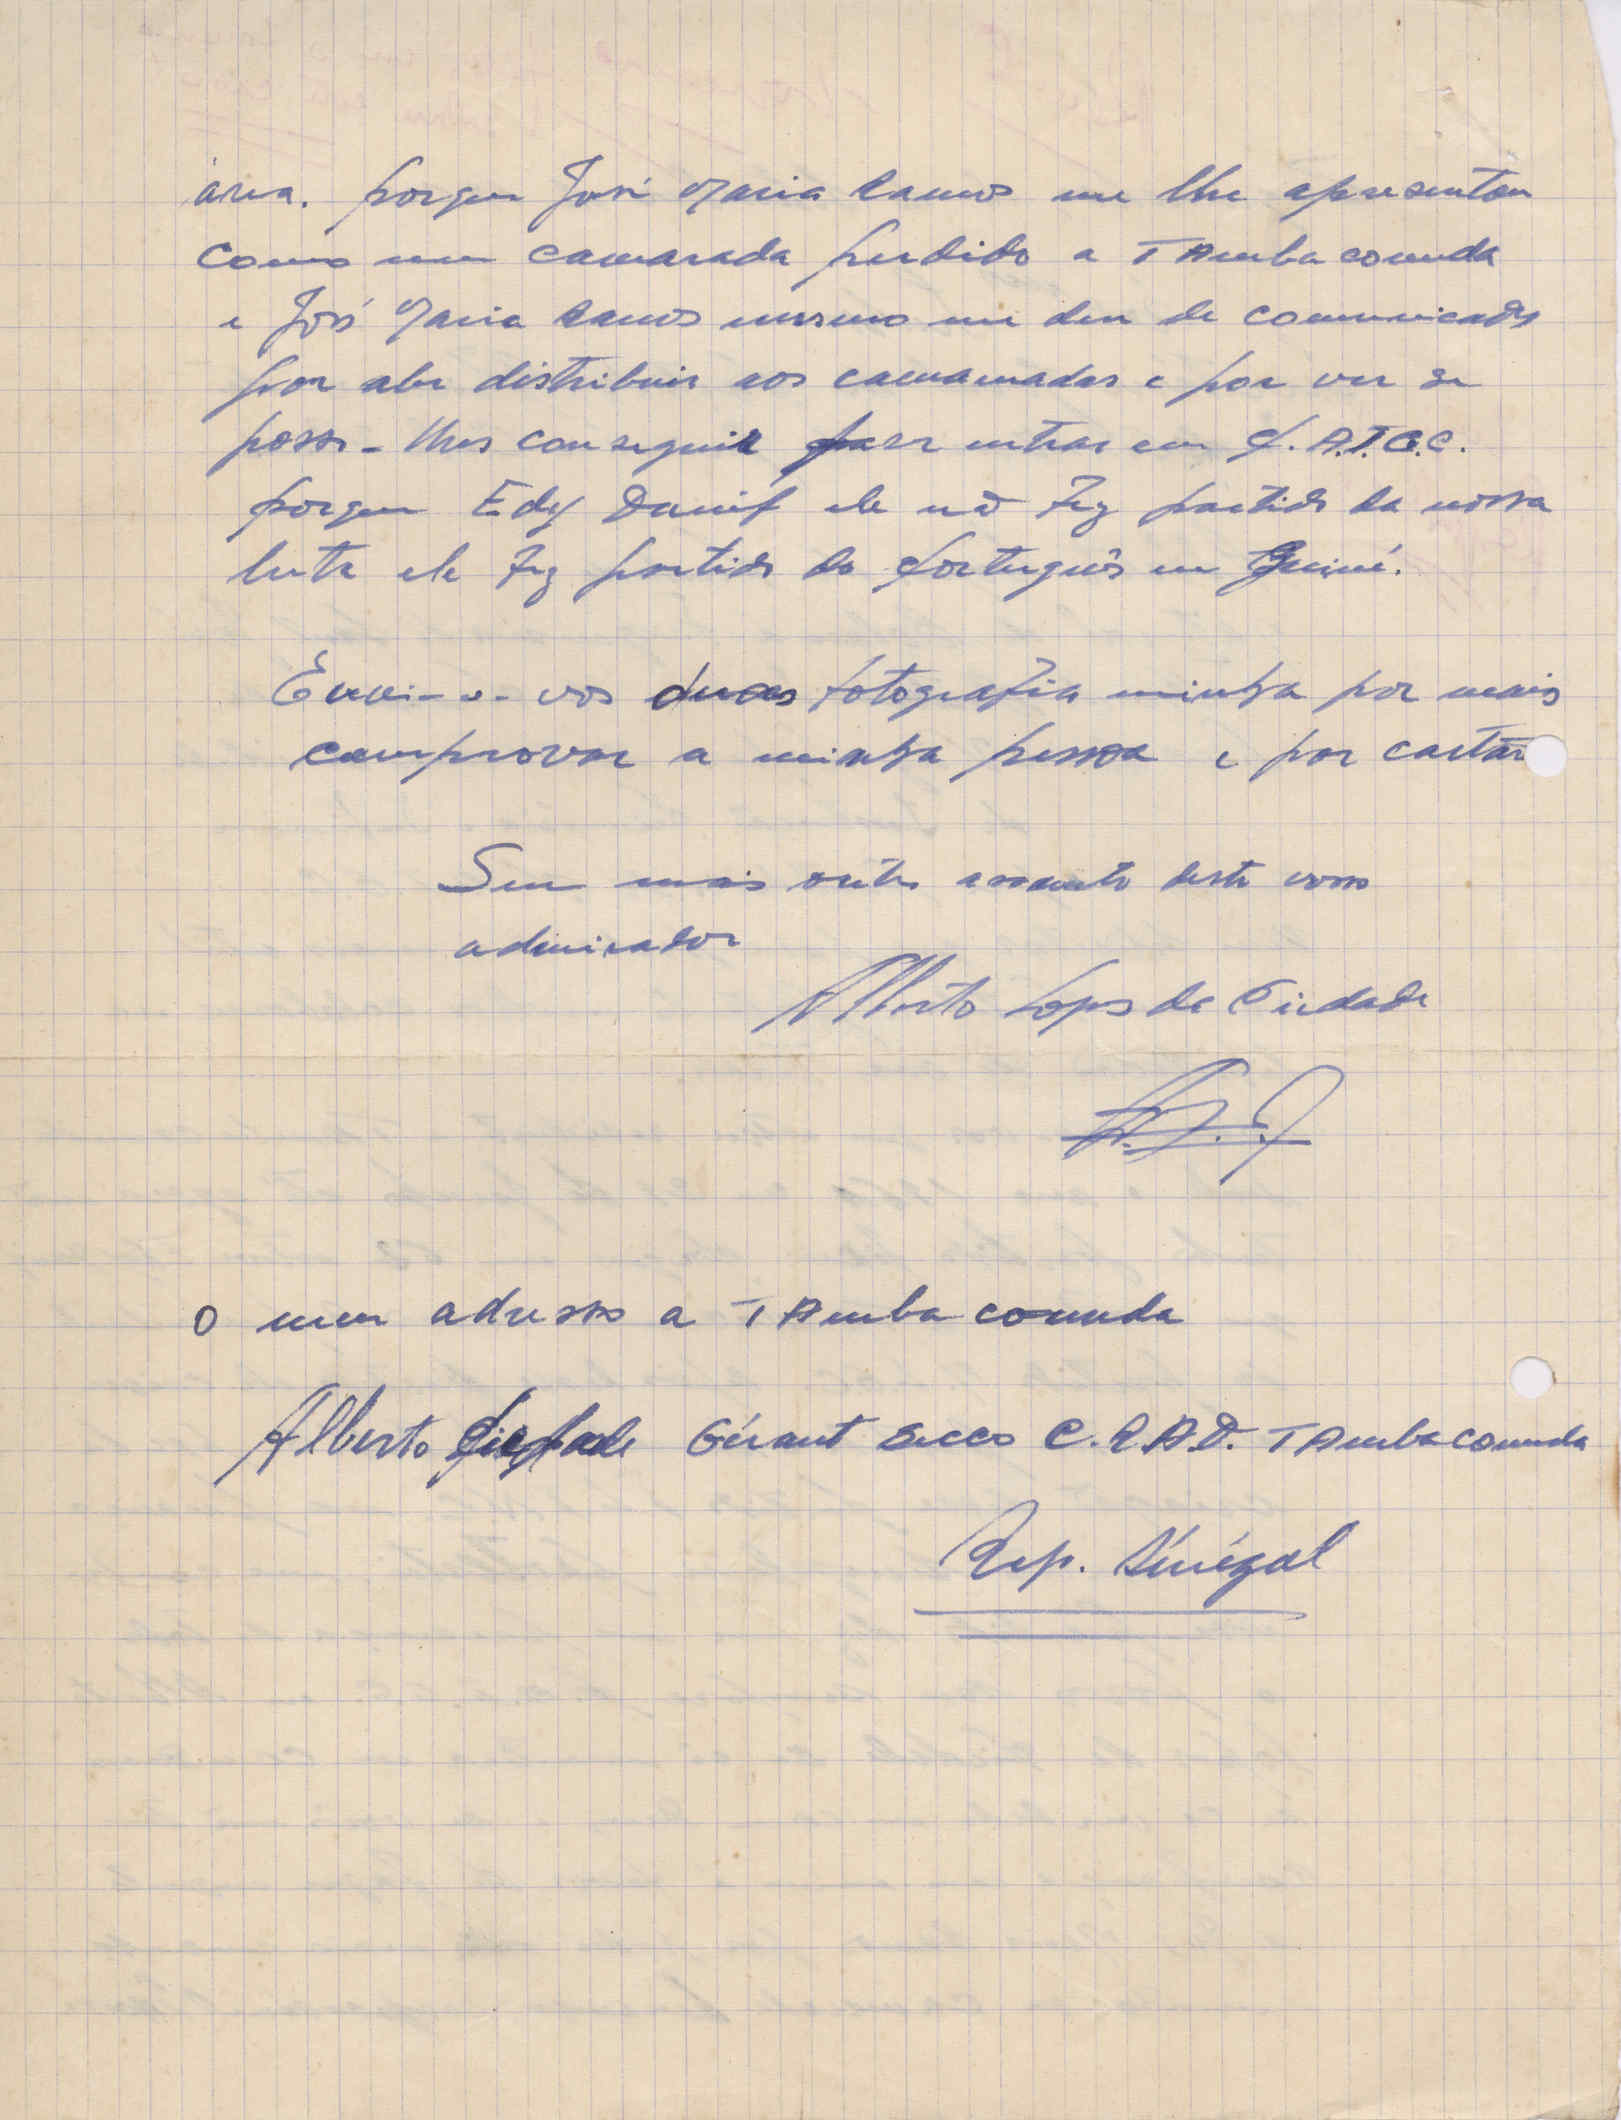 área. porque José Maria Ramos me lhe apresentou
como um camarada perdido a TAmbacounda
e José Maria Ramos mesmo me deu de comunicados
por abr distribuir aos camamadas e por ver se
posso-lhes conseguir para entrar em P.A.I.G.C.
porque Edy Danif ele nõ Fez partido da nossa
luta ele Fez partido do Português em Guiné.
Envi-o-vos duas fotografia minha por mais
comprovar a minha pessoa e por cartão
Sem mais outro assunto deste vosso
admirador
Alberto Lopes da Piedade
A.L.P.
O meu adresso a TAmbacounda
Alberto Piedade Gérant Secco C.R.A.D. TAmbacounda
Rep. Sénégal